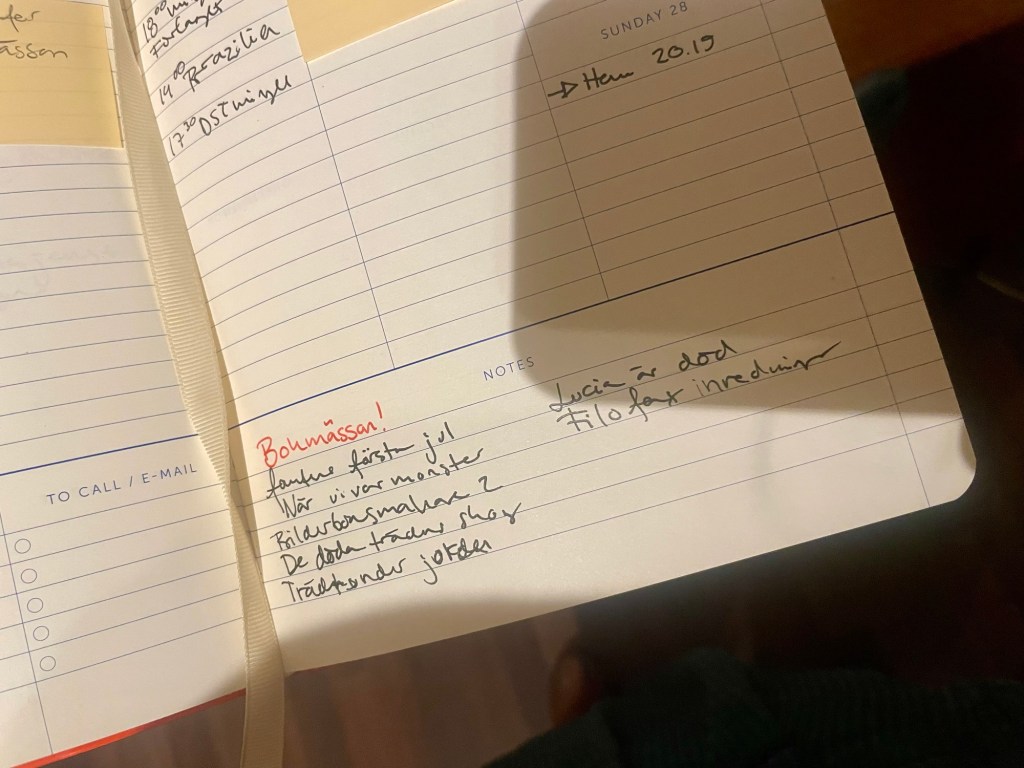 18⁰⁰
Förlaget
19⁰⁰ Brazilia
17³⁰ Ostmingel
SUNDAY 28
→ Hem 20.19
NOTES
Bokmässan!
första jul
När vi var monster
Bilderboksmakare 2
De döda trädens skog
jorden
Lucia är död
Filofax inredning
TO CALL / E-MAIL